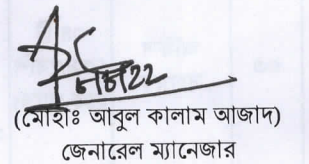 (মোহাঃ আবুল কালাম আজাদ)
জেনারেল ম্যানেজার